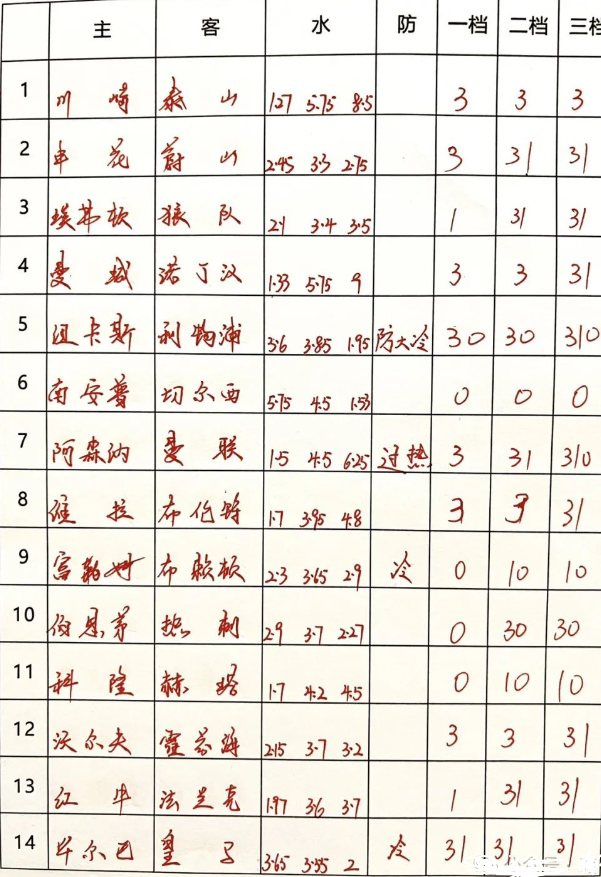 主 客 水 防 一档 二档 三档
1 川崎 泰山 1.27 5.75 8.5 3 3 3
2 申花 蔚山 2.45 3.3 2.75 3 31 31
3 埃弗顿 狼队 2.1 3.4 3.5 1 31 31
4 曼城 诺丁汉 1.33 5.75 9 3 3 31
5 纽卡斯 利物浦 3.6 3.85 1.95 防大冷 30 30 310
6 南安普 切尔西 5.75 4.5 1.53 0 0 0
7 阿森纳 曼联 1.5 4.5 6.25 过热 3 31 310
8 维拉 布伦特 1.7 3.95 4.8 3 3 31
9 富勒姆 布赖顿 2.3 3.65 2.9 冷 0 10 10
10 伯恩茅 热刺 2.9 3.7 2.27 0 30 30
11 科隆 赫塔 1.7 4.2 4.5 0 10 10
12 沃尔夫 霍芬海 2.15 3.7 3.2 3 3 31
13 红牛 法兰克 1.97 3.6 3.7 1 31 31
14 毕尔巴 皇马 3.65 3.55 2 冷 31 31 31